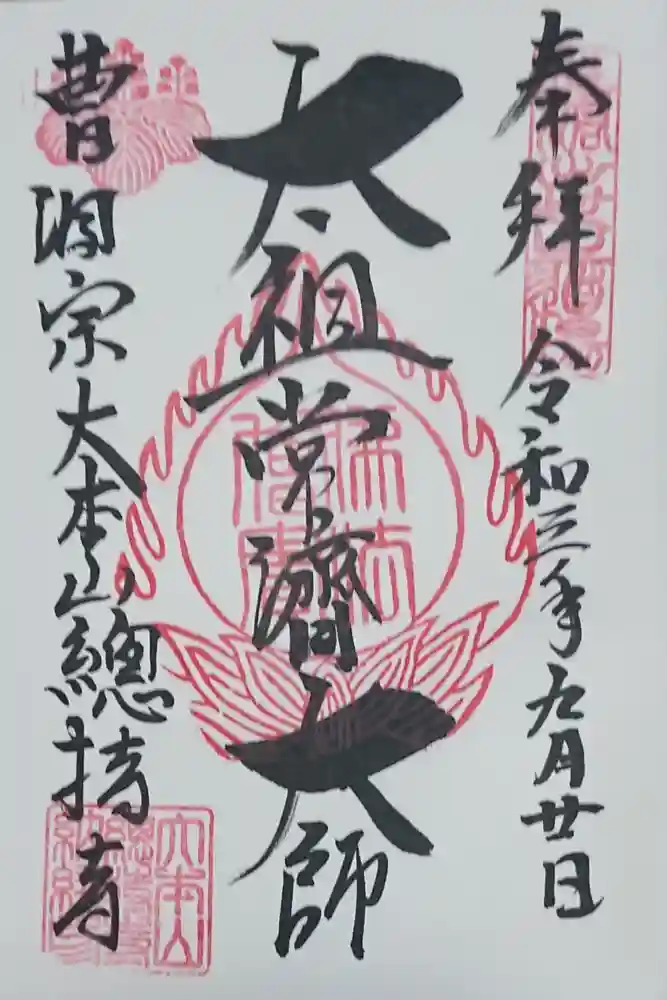 奉拝 令和三年九月廿日
太祖常濟大師
曹洞宗大本山總持寺
佛法
僧寶
大本山
總持寺